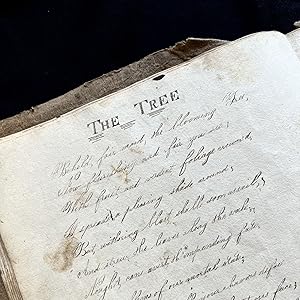 THE TREE
Behold, fair maid, the blooming Tree,
How flourishing and fair you see;
With fruit and verdant foliage crown'd,
It spreads a pleasing shade around;
But withering blast shall soon assail,
And strew the leaves along the vale,
Nought can avert th' impending fate,
of our mortal state;